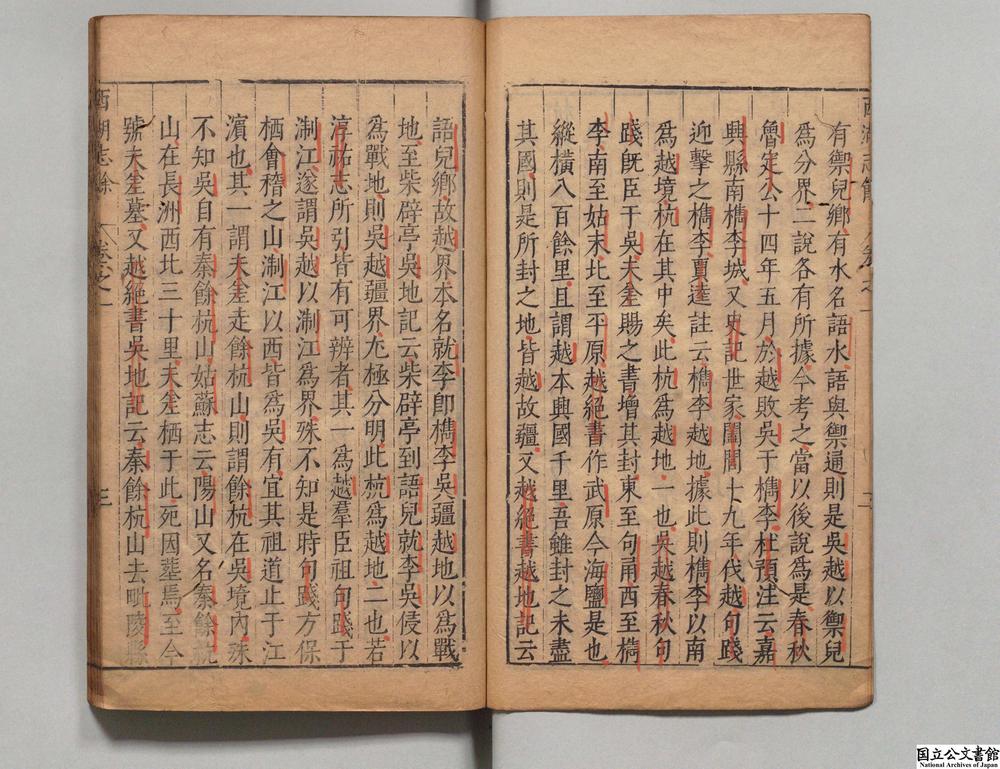 有禦兒鄉有水名語水語與禦通則是吳越以禦兒
為分界二說各有所據今考之當以後說為是春秋
魯定公十四年五月於越敗吳于檇李杜預注云嘉
興縣南檇李城又史記世家闔閭十九年伐越句踐
迎擊之檇李賈逵註云檇李越地據此則檇李以南
為越境杭在其中矣此杭為越地一也吳越春秋句
踐旣臣于吳夫差賜之書增其封東至句甬西至檇
李南至姑末北至平原越絕書作武原今海鹽是也
縱橫八百餘里且謂越本興國千里吾雖封之未盡
其國則是所封之地皆越故疆又越絕書越地記云
西湖志餘 卷之一 二
語兒鄉故越界本名就李即檇李吳疆越地以為戰
地至柴辟亭吳地記云柴辟亭到語兒就李吳侵以
為戰地則吳越疆界尤極分明此杭為越地二也若
淳祐志所引皆有可辨者其一為越羣臣祖句踐于
淛江遂謂吳越以淛江為界殊不知是時句踐方保
栖會稽之山淛江以西皆為吳有宜其祖道止于江
濱也其一謂夫差走餘杭山則謂餘杭在吳境內殊
不知吳自有秦餘杭山姑蘇志云陽山又名秦餘杭
山在長洲西北三十里夫差栖于此死因塟焉至今
號夫差墓又越絕書吳地記云秦餘杭山去毗陵縣
西湖志餘 卷之一 三
国立公文書館
National Archives of Japan